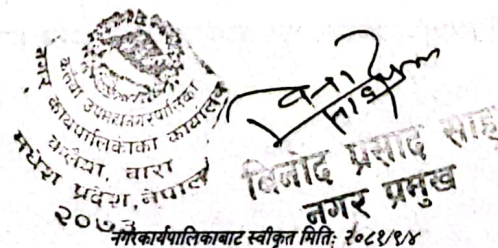 कलैया उपमहानगरपालिका
नगर कार्यपालिकाको कार्यालय
कलैया, बारा
मधेश प्रदेश, नेपाल
बिनोद प्रसाद साह
नगर प्रमुख
नगरकार्यपालिकाबाट स्वीकृत मितिः २०८१/९/४